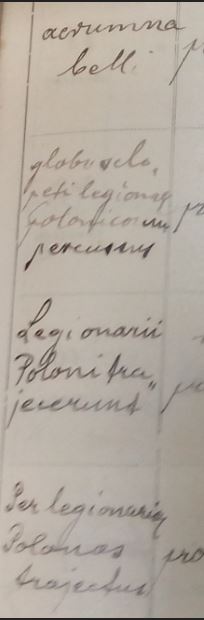 aerumna
belli
globo sclo,
peti legionis
polonicorum
percussus
Legionarii
Poloni tra„
jecerunt
Per legionarios
Polonos
trajectus